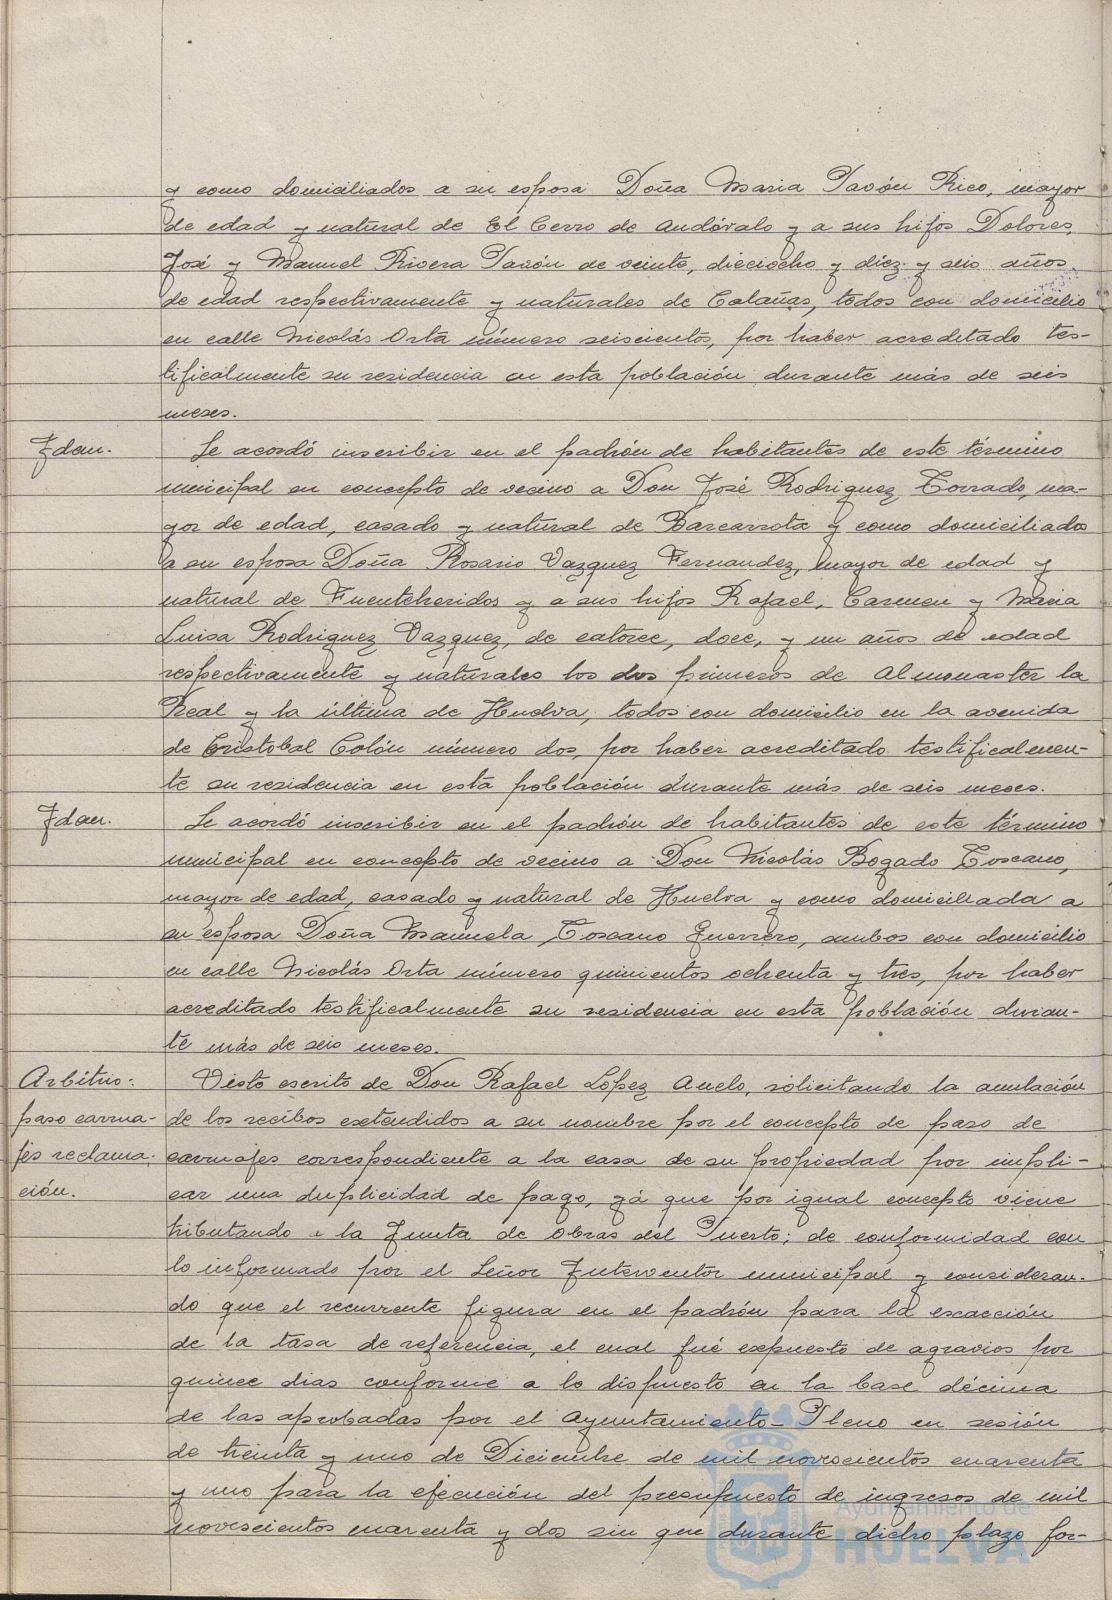 y como domiciliados a su esposa Doña Maria Pavón Rico, mayor
de edad y natural de El Cerro de Andévalo y a sus hijos Dolores,
José y Manuel Rivera Pavón de veinte, dieciocho y diez y seis años
de edad respectivamente y naturales de Calañas, todos con domicilio
en calle Nicolás Orta número seiscientos, por haber acreditado tes-
tificalmente su residencia en esta población durante más de seis
meses.
Idem.
Se acordó inscribir en el padrón de habitantes de este término
municipal en concepto de vecino a Don José Rodriguez Torrado, ma-
yor de edad, casado y natural de Barcarrota y como domiciliados
a su esposa Doña Rosario Vazquez Fernandez, mayor de edad y
natural de Fuenteheridos y a sus hijos Rafael, Carmen y Maria
Luisa Rodriguez Vazquez, de catorce, doce, y un años de edad
respectivamente y naturales los dos primeros de Almonaster la
Real y la última de Huelva, todos con domicilio en la avenida
de Cristobal Colón número dos, por haber acreditado testificalmen-
te su residencia en esta población durante más de seis meses.
Idem.
Se acordó inscribir en el padrón de habitantes de este término
municipal en concepto de vecino a Don Nicolás Bogado Toscano,
mayor de edad, casado y natural de Huelva y como domiciliada a
su esposa Doña Manuela Toscano Guerrero, ambos con domicilio
en calle Nicolás Orta número quinientos ochenta y tres, por haber
acreditado testificalmente su residencia en esta población duran-
te más de seis meses.
Arbitrio:
paso carrua-
jes reclama-
ción.
Visto escrito de Don Rafael López Anelo, solicitando la anulación
de los recibos extendidos a su nombre por el concepto de paso de
carruajes correspondiente a la casa de su propiedad por impli-
car una duplicidad de pago, yá que por igual concepto viene
tributando a la Junta de Obras del Puerto; de conformidad con
lo informado por el Señor Interventor municipal y consideran-
do que el recurrente figura en el padrón para la exacción
de la tasa de referencia, el cual fué expuesto de agravios por
quince dias conforme a lo dispuesto en la base décima
de las aprobadas por el Ayuntamiento-Pleno en sesión
de treinta y uno de Diciembre de mil novecientos cuarenta
y uno para la ejecución del presupuesto de ingresos de mil
novescientos cuarenta y dos sin que durante dicho plazo for-
Ayuntamiento de
HUELVA